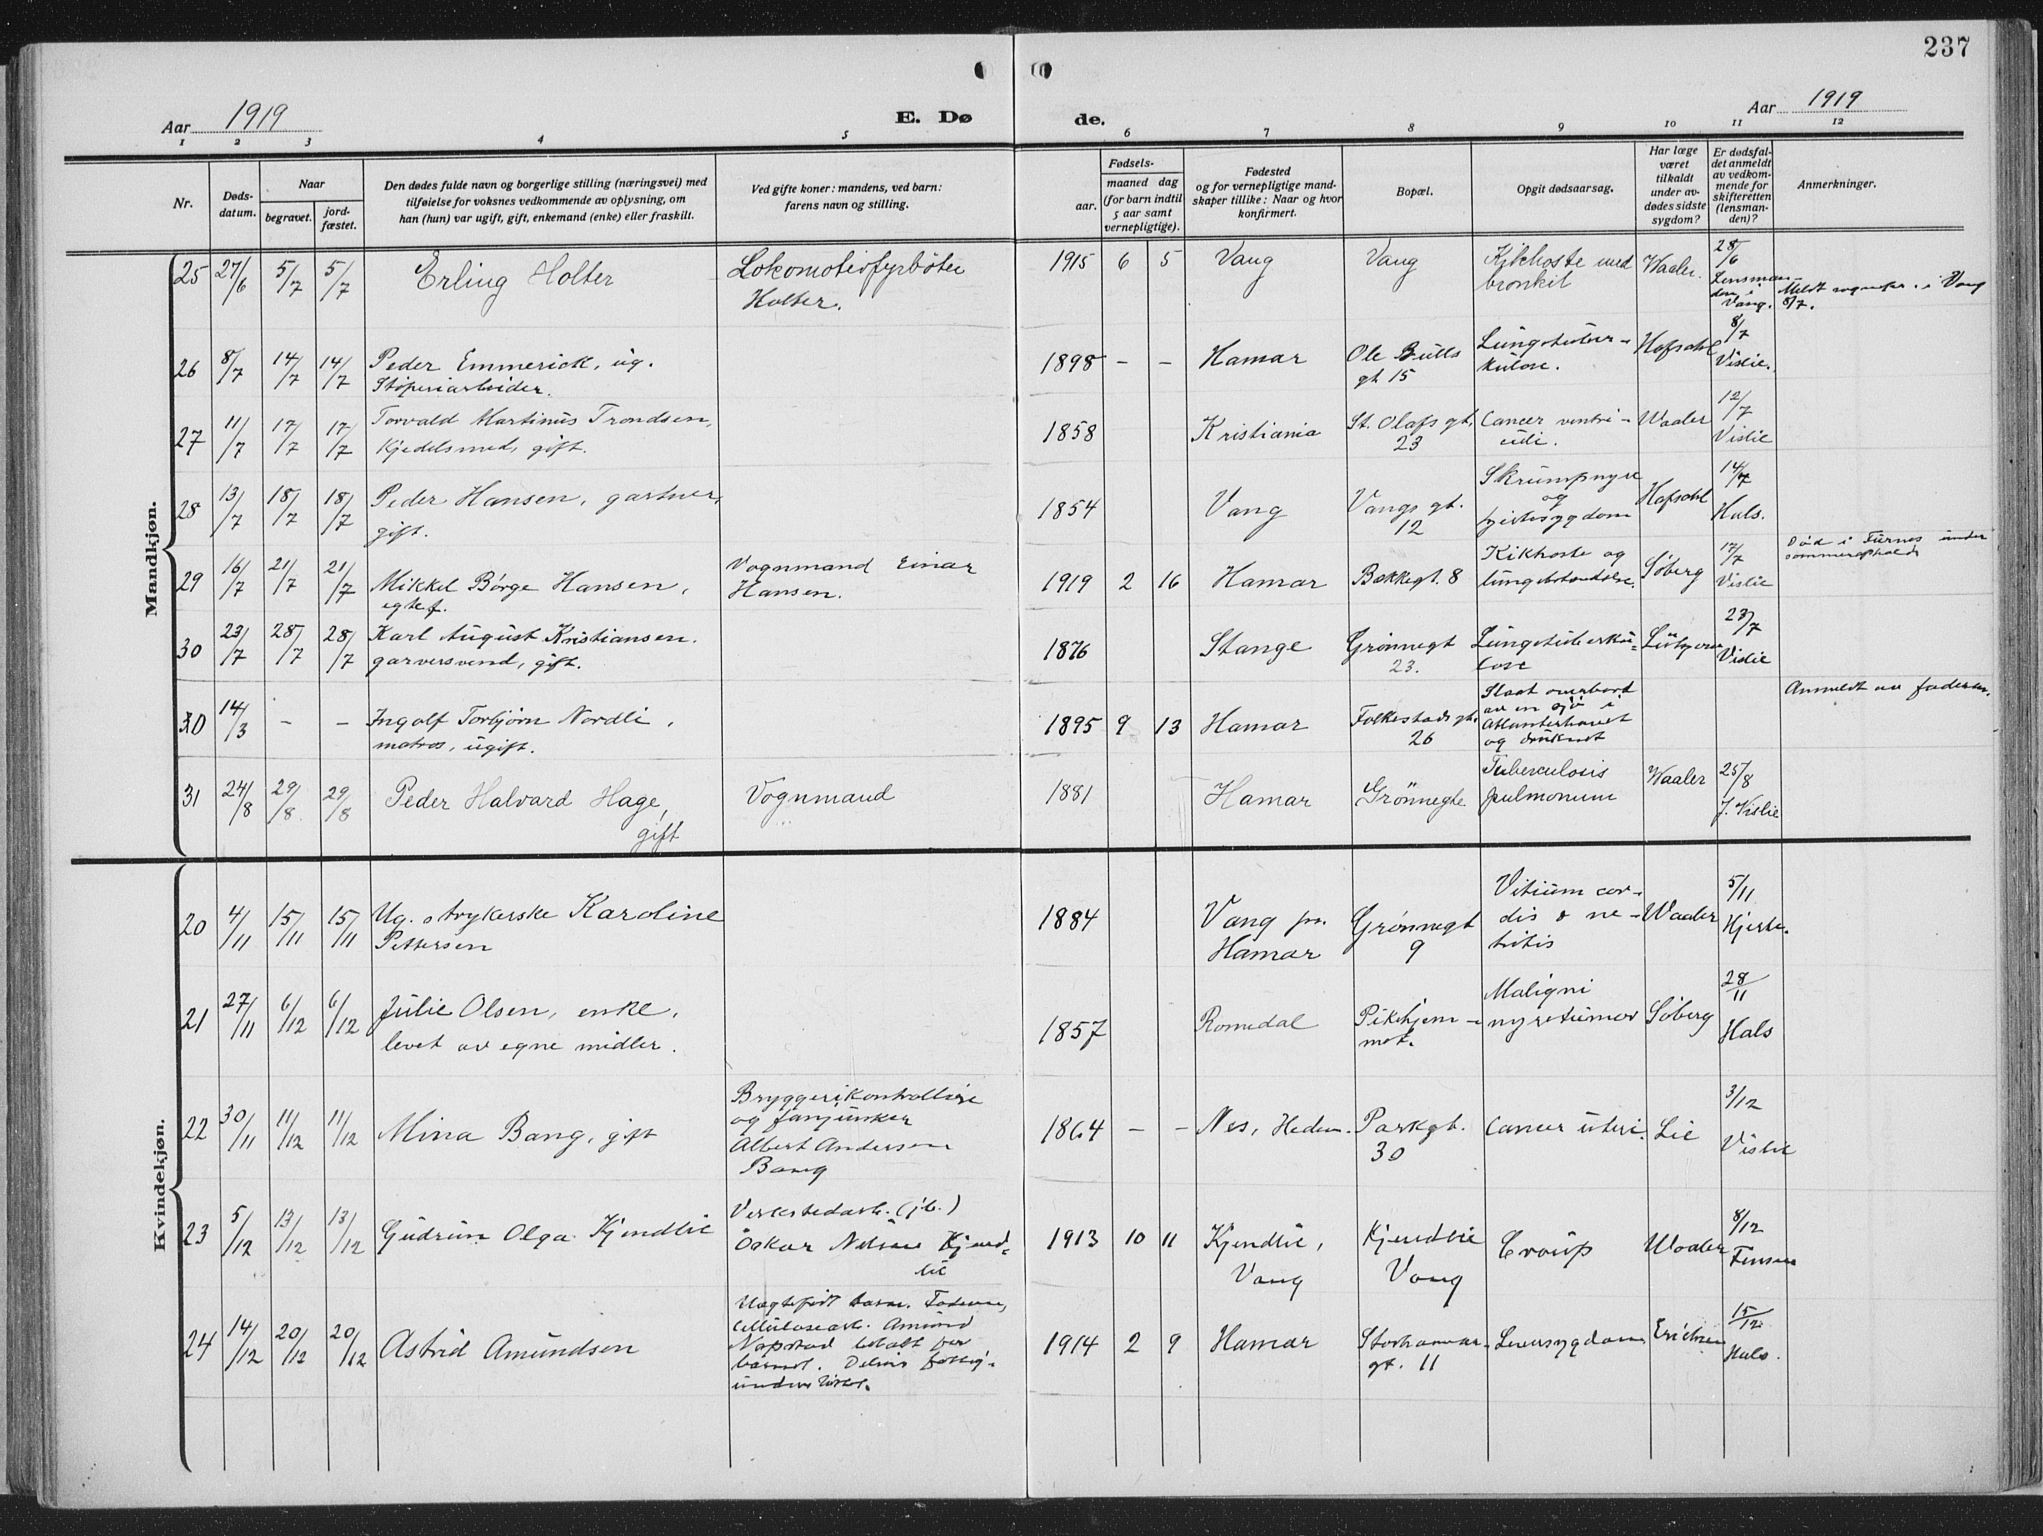 237
Aar 1919
E. Dø
de.
Aar 1919
1 2 3 4 5 6 7 8 9 10 11 12
Nr.
Døds-
datum.
Naar
begravet.
jord-
fæstet.
Den dødes fulde navn og borgerlige stilling (næringsvei) med
tilføielse for voksnes vedkommende av oplysning, om
han (hun) var ugift, gift, enkemand (enke) eller fraskilt.
Ved gifte koner: mandens, ved barn:
farens navn og stilling.
Fødsels-
aar.
maaned dag
(for barn indtil
5 aar samt
vernepligtige).
Fødested
og for vernepligtige mand-
skaper tillike: Naar og hvor
konfirmert.
Bopæl.
Opgit dødsaarsag.
Har læge
været
tilkaldt
under av-
dødes sidste
sygdom?
Er dødsfal-
det anmeldt
av vedkom-
mende for
skifteretten
(lensman-
den)?
Anmerkninger.
Mandkjøn.
25 27/6 5/7 5/7 Erling Holter
Lokomotivfyrbøter
Holter.
1915 6 5 Vang Vang
Kikhoste med
bronkit
Waaler.
28/6
Lensman-
den i
Vang.
8/7.
26 8/7 14/7 14/7 Peder Emmerick, ug.
Støperiarbeider.
1898 – – Hamar
Ole Bulls
gt 15
Lungetuber-
kulose.
Hofsahl
8/7
Vislie.
27 11/7 17/7 17/7 Torvald Martinus Trondsen,
Kjedelsmed, gift.
1858 Kristiania
St. Olafs gt.
23
Cancer ventri-
culi.
Waaler
12/7
Vislie
28 13/7 18/7 18/7 Peder Hansen, gartner,
gift.
1854 Vang
Vangs gt.
12
Skrumpnyre
og
Hofsahl
14/7
Hals.
29 16/7 21/7 21/7 Mikkel Børge Hansen,
egtef.
Vognmand Einar
Hansen.
1919 2 16 Hamar Bakkegt. 8
Kikhoste og
lungebetændelse.
Søberg
17/7
Vislie
Død i Furnes under
sommerophold
30 23/7 28/7 28/7 Karl August Kristiansen.
garversvend, gift.
1876 Stange
Grønnegt
23.
Lungetuberku-
lose
23/7
Vislie
30 14/3 – – Ingolf Torbjørn Nordli,
matros, ugift.
1895 9 13 Hamar
Folkestads gt.
26
Slaat overbord
av en sjø i
Atlanterhavet
og druknet
Anmeldt av faderen.
31 24/8 29/8 29/8 Peder Halvard Hage,
gift
Vognmand
1881 Hamar Grønnegte
Tuberculosis
pulmonum
Waaler
25/8
J. Vislie
Kvindekjøn.
20 4/11 15/11 15/11 Ug. strykerske Karoline
Pettersen
1884 Vang pr.
Hamar
Grønnegt
9
Vitium cor-
dis & ne-
Waaler
5/11
21 27/11 6/12 6/12 Julie Olsen, enke,
levet av egne midler.
1857 Romedal
Pikehjem-
met.
Maligni
nyretumor
Søberg
28/11
Hals
22 30/11 11/12 11/12 Mina Bang, gift
Bryggerikontrollør
og fanejunker
Albert Andersen
Bang
1864 – – Nes, Hedm.
Parkgt.
30
Cancer uteri.
Lie
3/12
Vislie
23 5/12 13/12 13/12 Gudrun Olga Kjendlie
Verkstedarb. (jb.)
Oskar Nilsen Kjend-
lie
1913 10 11 Kjendlie,
Vang
Kjendlie
Vang
Croup
Waaler
8/12
24 14/12 20/12 20/12 Astrid Amundsen
Uegtefødt barn. Faderen,
Cellulosearb. Amund
barnet.
1914 2 9 Hamar
Storhamar-
gt. 11
Leversygdom
Erichsen
15/12
Hals.